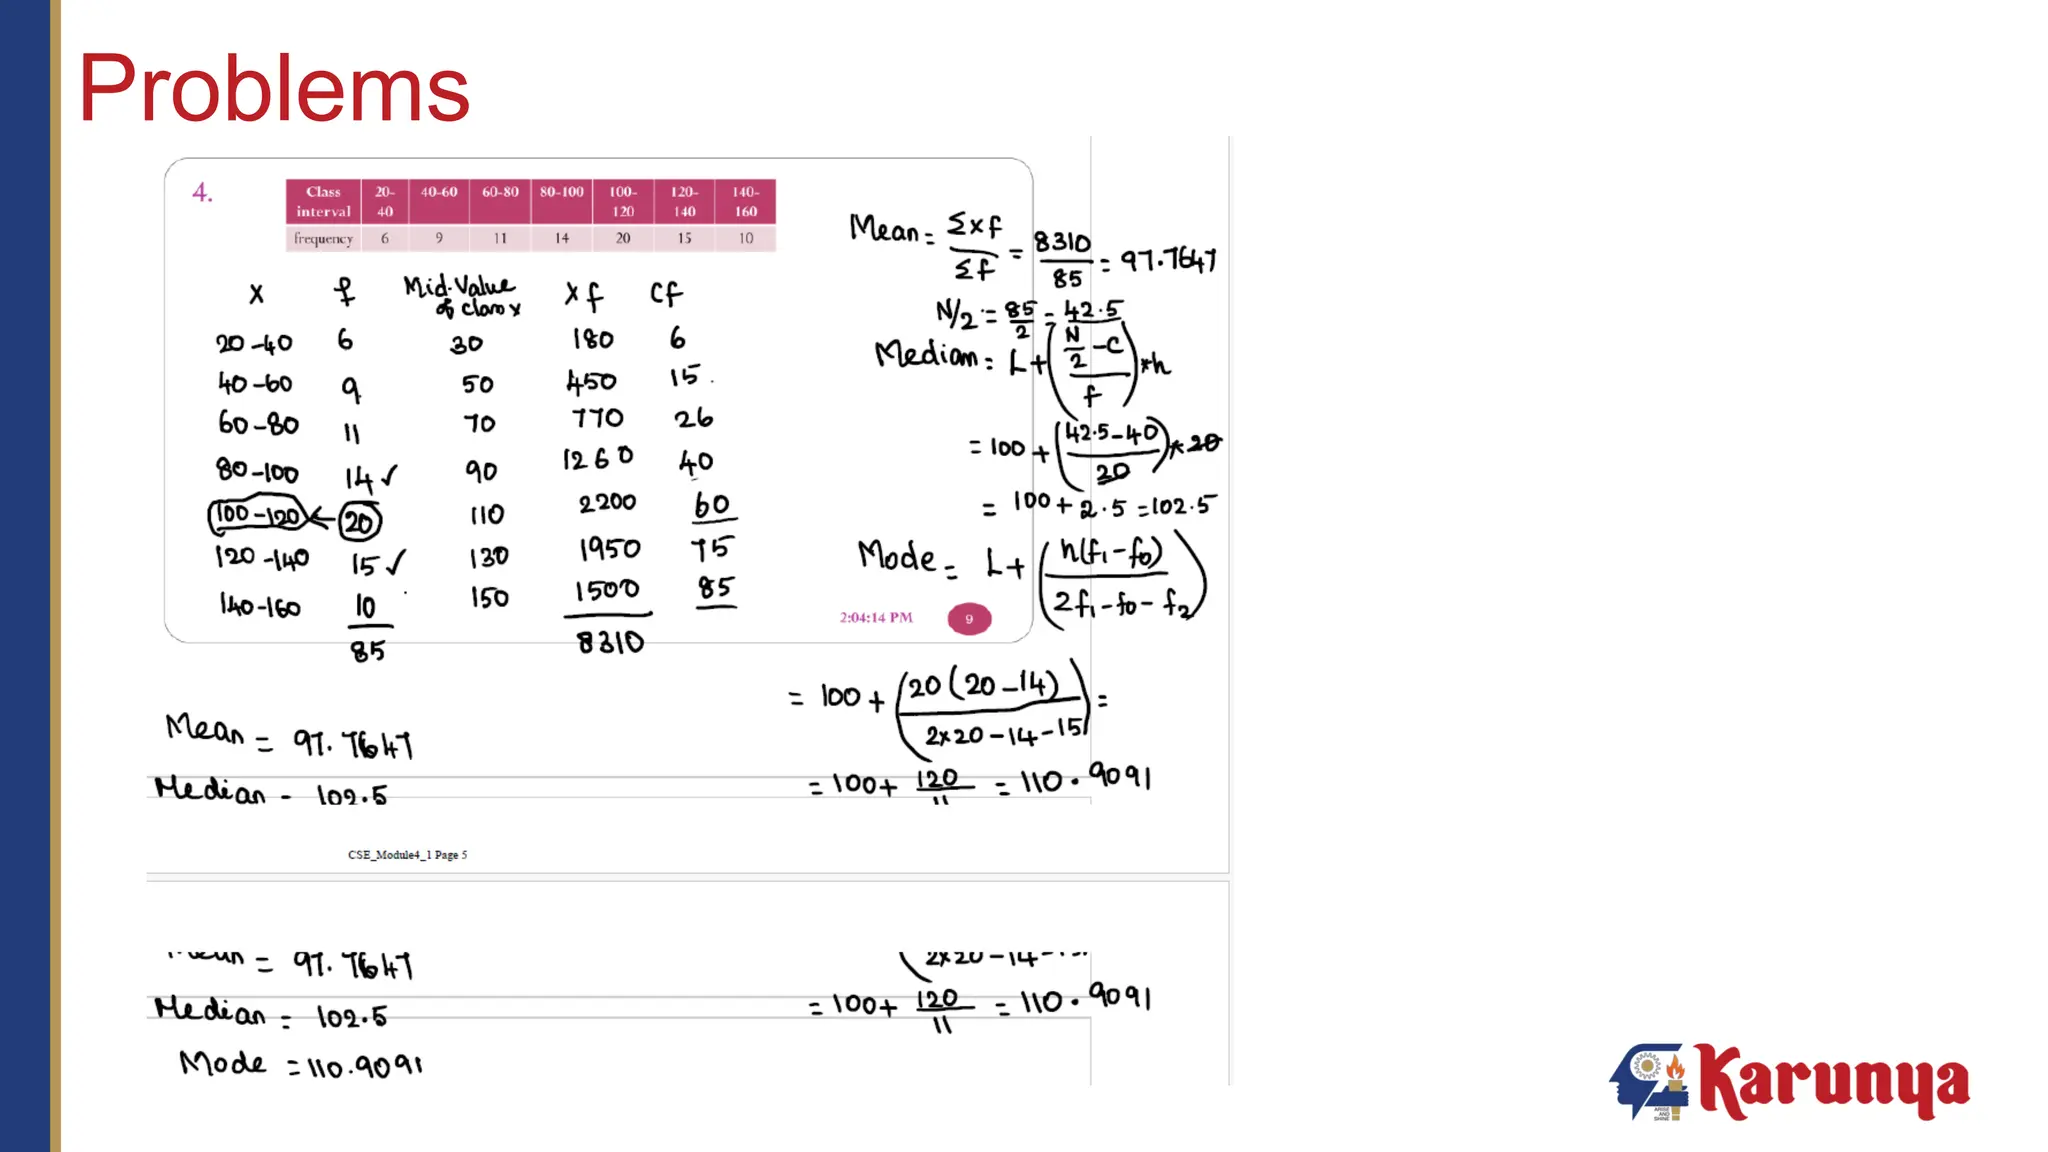 Problems
4.
Class interval 20-40 40-60 60-80 80-100 100-120 120-140 140-160
frequency 6 9 11 14 20 15 10
x f Mid-Value of class x xf cf
20-40 6 30 180 6
40-60 9 50 450 15
60-80 11 70 770 26
80-100 14 ✓ 90 1260 40
100-120 ← 20 110 2200 60
120-140 15 ✓ 130 1950 75
140-160 10 150 1500 85
85 8310
Mean = Σxf / Σf = 8310 / 85 = 97.7647
N/2 = 85/2 = 42.5
Median = L + ((N/2 - C) / f) * h
= 100 + ((42.5-40) / 20) * 20
= 100 + 2.5 = 102.5
Mode = L + (h(f1-f0) / 2f1-f0-f2)
2:04:14 PM 9
= 100 + (20(20-14) / 2x20-14-15) =
= 100 + 120/11 = 110.9091
Mean = 97.7647
Median - 102.5
CSE_Module4_1 Page 5
Mean = 97.7647
2x20-14-15
Median = 102.5
= 100 + 120/11 = 110.9091
Mode = 110.9091
ARISE
AND
SHINE
Karunya